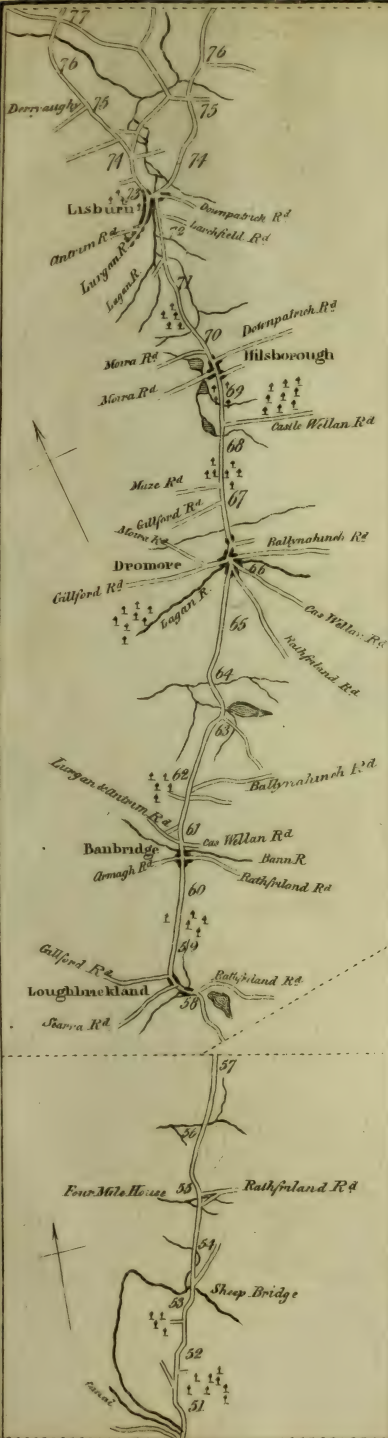 77
76
76
Derryaughy
75
75
74
74
73
Lisburn
Downpatrick Rd
Larchfield Rd
Antrim Rd
Lurgan R
72
Lagan R.
71
70
Downpatrick Rd
Moira Rd
Hilsborough
Moira Rd
69
Castle Wellan Rd
68
Maze Rd
67
Gillford Rd
Moira Rd
Ballynahinch Rd
Dromore
66
Gillford Rd
Lagan R.
Cas Wellan Rd
65
Rathfriland Rd
64
63
62
Ballynahinch Rd
Lurgan & Antrim Rd
61
Cas Wellan Rd
Banbridge
Bann R
Armagh Rd
Rathfriland Rd
60
59
Gillford Rd
Rathfriland Rd
Loughbrickland
58
Scarva Rd
57
56
Four Mile House
55
Rathfriland Rd
54
Sheep Bridge
53
52
51
Canal